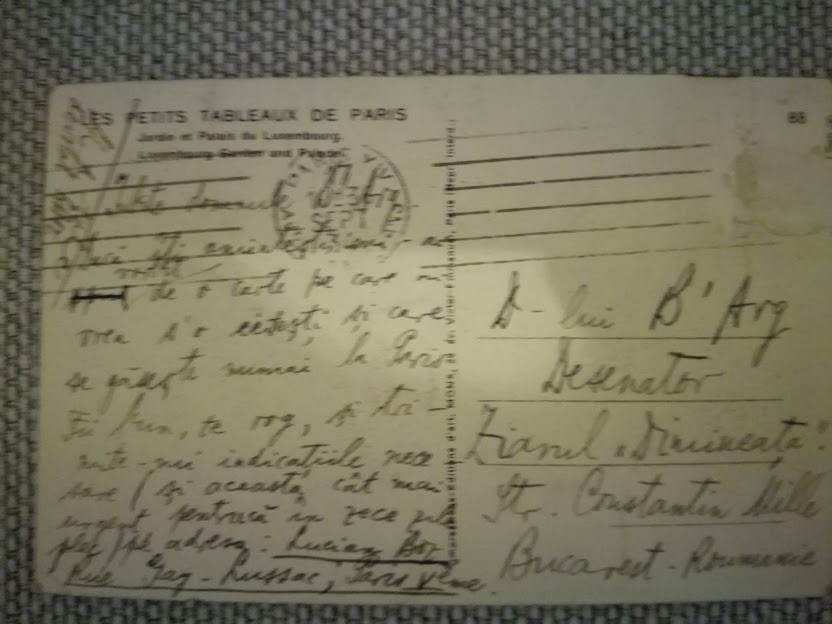 LES PETITS TABLEAUX DE PARIS
88
Jardin et Palais du Luxembourg.
Luxembourg Garden and Palace.
SEPT
domnule
de o carte pe care mi-
vrea s'o citești și care
se găsește numai la Paris
Fii bun, te rog, și tri-
mite-mi indicațiile nece-
sare (și aceasta cât mai
urgent pentrucă în zece zile
plec) pe adresa: Lucian Bo
Rue Gay-Lussac, Paris Vème.
D-lui B'Arg
Desenator
Ziarul „Dimineața"
Str. Constantin Mille
Bucarest - Roumanie